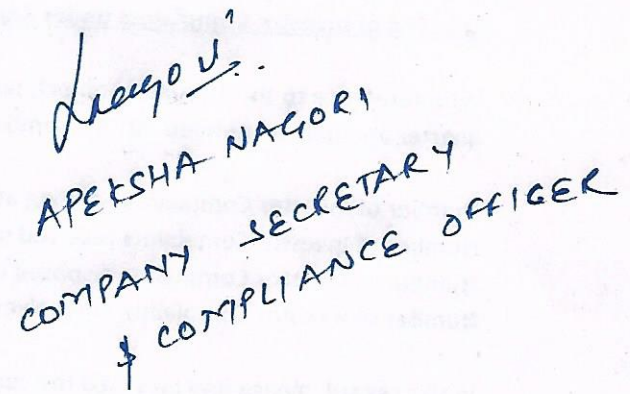 APEKSHA NAGORI
COMPANY SECRETARY
& COMPLIANCE OFFICER